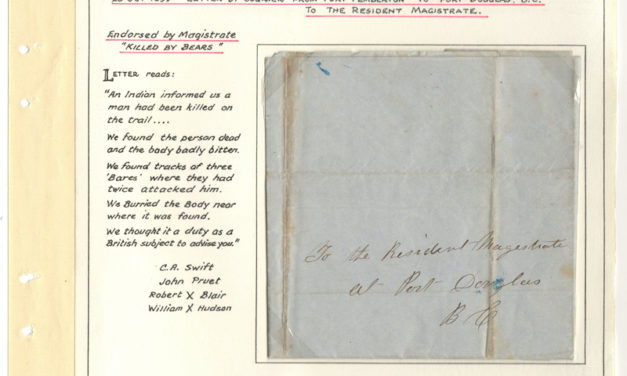 LETTER BY COURIER FROM PORT PEMBERTON TO PORT DOUGLAS, B.C.
TO THE RESIDENT MAGISTRATE.
Endorsed by Magistrate
"KILLED BY BEARS"
LETTER reads:
"An Indian informed us a
man had been killed on
the trail....
We found the person dead
and the body badly bitten.
We found tracks of three
'Bares' where they had
twice attacked him.
We Burried the Body near
where it was found.
We thought it a duty as a
British subject to advise you."
C.A. Swift
John Pruet
Robert X Blair
William X Hudson
To the Resident Magestrate
at Port Douglas
B C